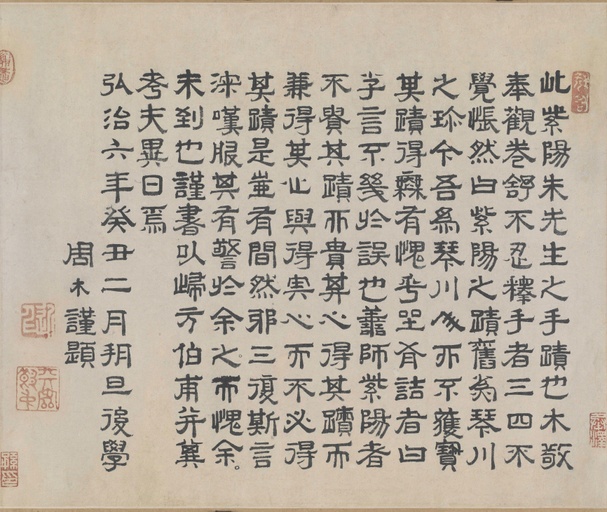 此紫陽朱先生之手蹟也木敬
奉觀卷舒不忍釋手者三四不
覺悵然曰紫陽之蹟舊矣琴川
之珍今吾為琴川人亦不獲寶
其蹟得無有愧乎坐有詰者曰
子言不幾於誤也蓋師紫陽者
不貴其蹟而貴其心得其蹟而
兼得其心與得其心而不必得
其蹟是豈有間然邪三復斯言
深嘆服其有警於余之而愧余
未到也謹書以歸方伯甫并冀
考夫異日焉
弘治六年癸丑二月朔旦後學
周木謹題